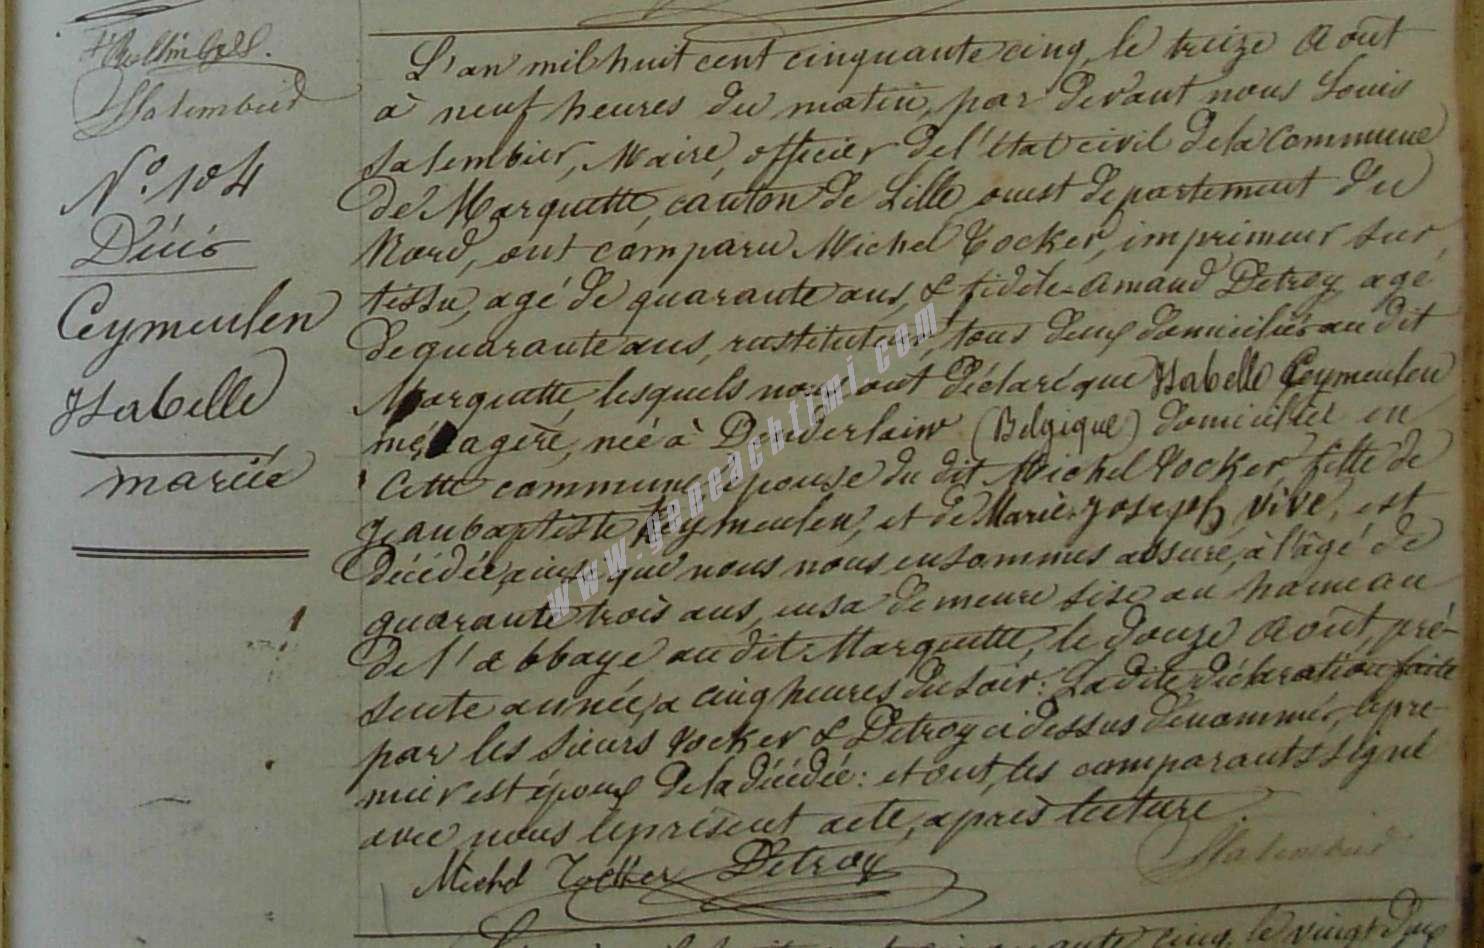 Salembier
N.° 104
Décès
Ceymeulen
Isabelle
mariée
L'an mil huit cent cinquante cinq, le treize Août
à neuf heures du matin, par devant nous Louis
Salembier, Maire, officier de l'état civil de la commune
de Marquette, canton de Lille ouest département du
Nord, ont comparu Michel Tocker, imprimeur sur
tissu, agé de quarante ans, & fidèle-amand Detroy, agé
de quarante ans, instituteur, tous deux domiciliés au dit
Marquette, lesquels nous ont déclaré que Isabelle Ceymeulen
ménagère, née à Denderlain (Belgique) domiciliée en
cette commune épouse du dit Michel Tocker, fille de
Jean baptiste Keymeulen, et de Marie-Joseph Vive, est
décédée, ainsi que nous nous en sommes assuré, à l'âgé de
quarante trois ans, en sa demeure sise au hameau
de l'abbaye au dit Marquette, le douze Août, pré-
sente année, a cinq heures du soir: Ladite déclaration faite
par les sieurs Tocker & Detroy ci dessus dénommés, le pre-
mier est époux de la décédée: et ont, les comparants signé
avec nous le présent acte, après lecture.
Michel Tocker Detroy
Salembier
cinq, le vingt deux
www.geneachtimi.com